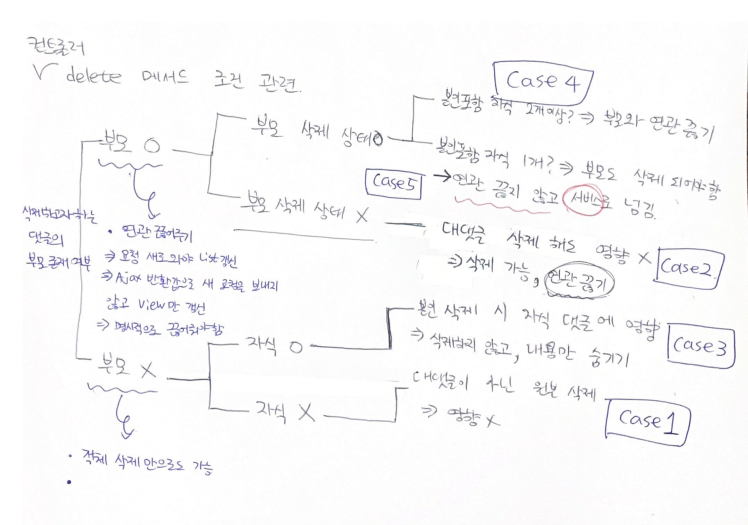 컨트롤러
V delete 메서드 조건 관련.
Case 4
부모 O
부모 삭제 상태O
본인포함 자식 2개이상? ⇒ 부모와 연관 끊기
본인포함 자식 1개? ⇒ 부모도 삭제 되어야 함
→ 연관 끊지 않고 서비스로 넘김.
Case5
부모 삭제 상태 X
대댓글 삭제 해도 영향 X
⇒ 삭제 가능, 연관 끊기
Case2.
삭제하고자 하는
댓글의
부모 존재 여부
• 연관 끊어주기
⇒ 요청 새로 와야 List 갱신
⇒ Ajax 반환값으로 새 로직을 보내지
않고 View만 갱신
⇒ 명시적으로 끊어줘야함
부모 X
자식 O
본인 삭제 시 자식 댓글에 영향
⇒ 삭제하지 않고, 내용만 숨기기
Case3
자식 X
대댓글이 아닌 원본 삭제
⇒ 영향 X
Case1
• 객체 삭제만으로도 가능
•